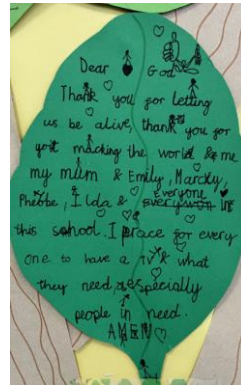 Dear God
Thank you for letting
us be alive, thank you for
macking the world & me
my mum & Emily, Marcky,
Pheobe, Ilda & everyone in
this school. I prace for every
one to have a & what
they need especially
people in need.
AMEN